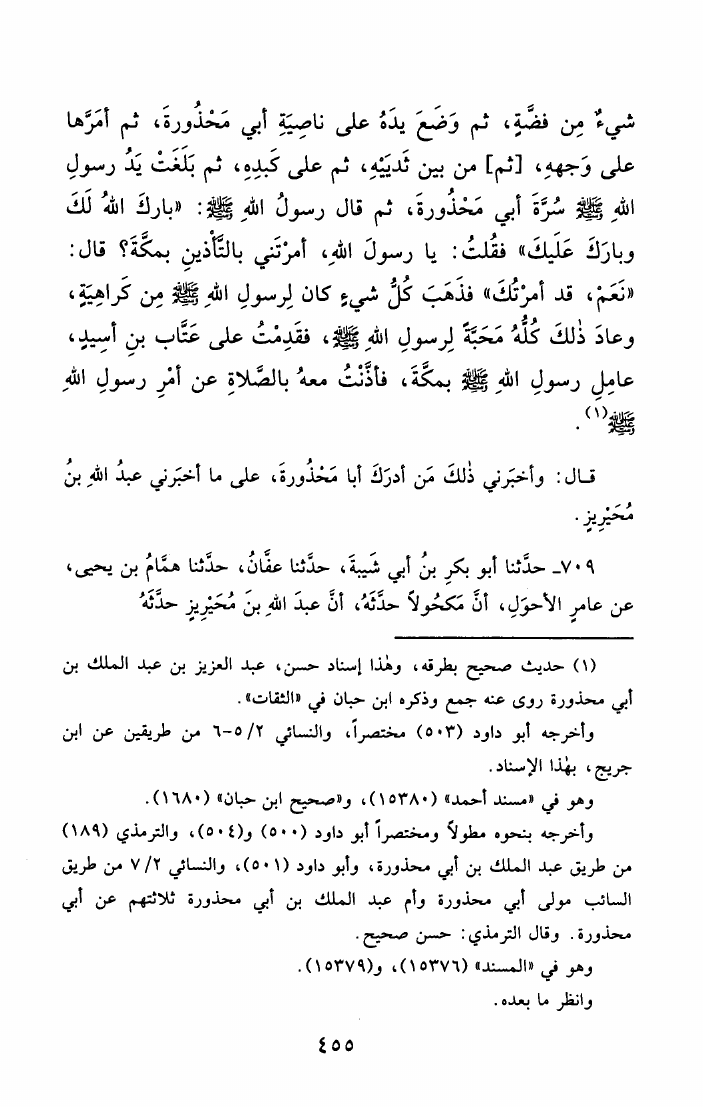 شيءٌ مِن فضَّةٍ، ثم وَضَعَ يدَهُ على ناصِيَةِ أبي مَحْذُورةَ، ثم أمَرَّها
على وَجههِ، [ثم] من بين ثَديَيْهِ، ثم على كَبدِهِ، ثم بَلَغَتْ يَدُ رسولِ
اللهِ ﷺ سُرَّةَ أبي مَحْذُورةَ، ثم قال رسولُ اللهِ ﷺ: «باركَ اللهُ لَكَ
وبارَكَ عَلَيكَ» فقُلتُ: يا رسولَ اللهِ، أمرْتَني بالتَّأْذينِ بمكَّةَ؟ قال:
«نَعَمْ، قد أمرْتُكَ» فذَهَبَ كُلُّ شيءٍ كان لِرسولِ اللهِ ﷺ مِن كَراهِيَةٍ،
وعادَ ذٰلكَ كُلُّهُ مَحَبَّةً لِرسولِ اللهِ ﷺ، فقَدِمْتُ على عَتَّاب بنِ أَسِيدٍ،
عاملِ رسولِ اللهِ ﷺ بمكَّةَ، فأذَّنْتُ معهُ بالصَّلاةِ عن أمْرِ رسولِ اللهِ
ﷺ(١).
قـال: وأخبَرني ذٰلكَ مَن أدرَكَ أبا مَحْذُورةَ، على ما أخبَرني عبدُ اللهِ بنُ
مُحَيْرِيزٍ.
٧٠٩ـ حدَّثنا أبو بكرِ بنُ أبي شَيبةَ، حدَّثنا عفَّانُ، حدَّثنا همَّامُ بن يحيى،
عن عامرٍ الأحوَلِ، أنَّ مَكحُولاً حدَّثَهُ، أنَّ عبدَ اللهِ بنَ مُحَيْرِيزٍ حدَّثَهُ
(١) حديث صحيح بطرقه، وهٰذا إسناد حسن، عبد العزيز بن عبد الملك بن
أبي محذورة روى عنه جمع وذكره ابن حبان في «الثقات».
وأخرجه أبو داود (٥٠٣) مختصراً، والنسائي ٢/ ٥-٦ من طريقين عن ابن
جريج، بهٰذا الإسناد.
وهو في «مسند أحمد» (١٥٣٨٠)، و«صحيح ابن حبان» (١٦٨٠).
وأخرجه بنحوه مطولاً ومختصراً أبو داود (٥٠٠) و(٥٠٤)، والترمذي (١٨٩)
من طريق عبد الملك بن أبي محذورة، وأبو داود (٥٠١)، والنسائي ٢/ ٧ من طريق
السائب مولى أبي محذورة وأم عبد الملك بن أبي محذورة ثلاثتهم عن أبي
محذورة. وقال الترمذي: حسن صحيح.
وهو في «المسند» (١٥٣٧٦)، و(١٥٣٧٩).
وانظر ما بعده.
٤٥٥